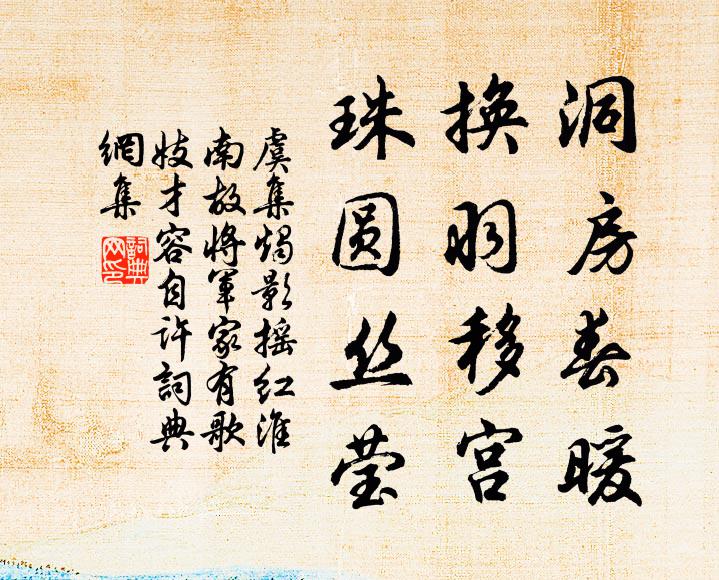 洞房春暖
换羽移宫
珠圆丝莹
虞集烛影摇红淮
南故将军家有歌
妓才容自许词典
网集
词典
网印